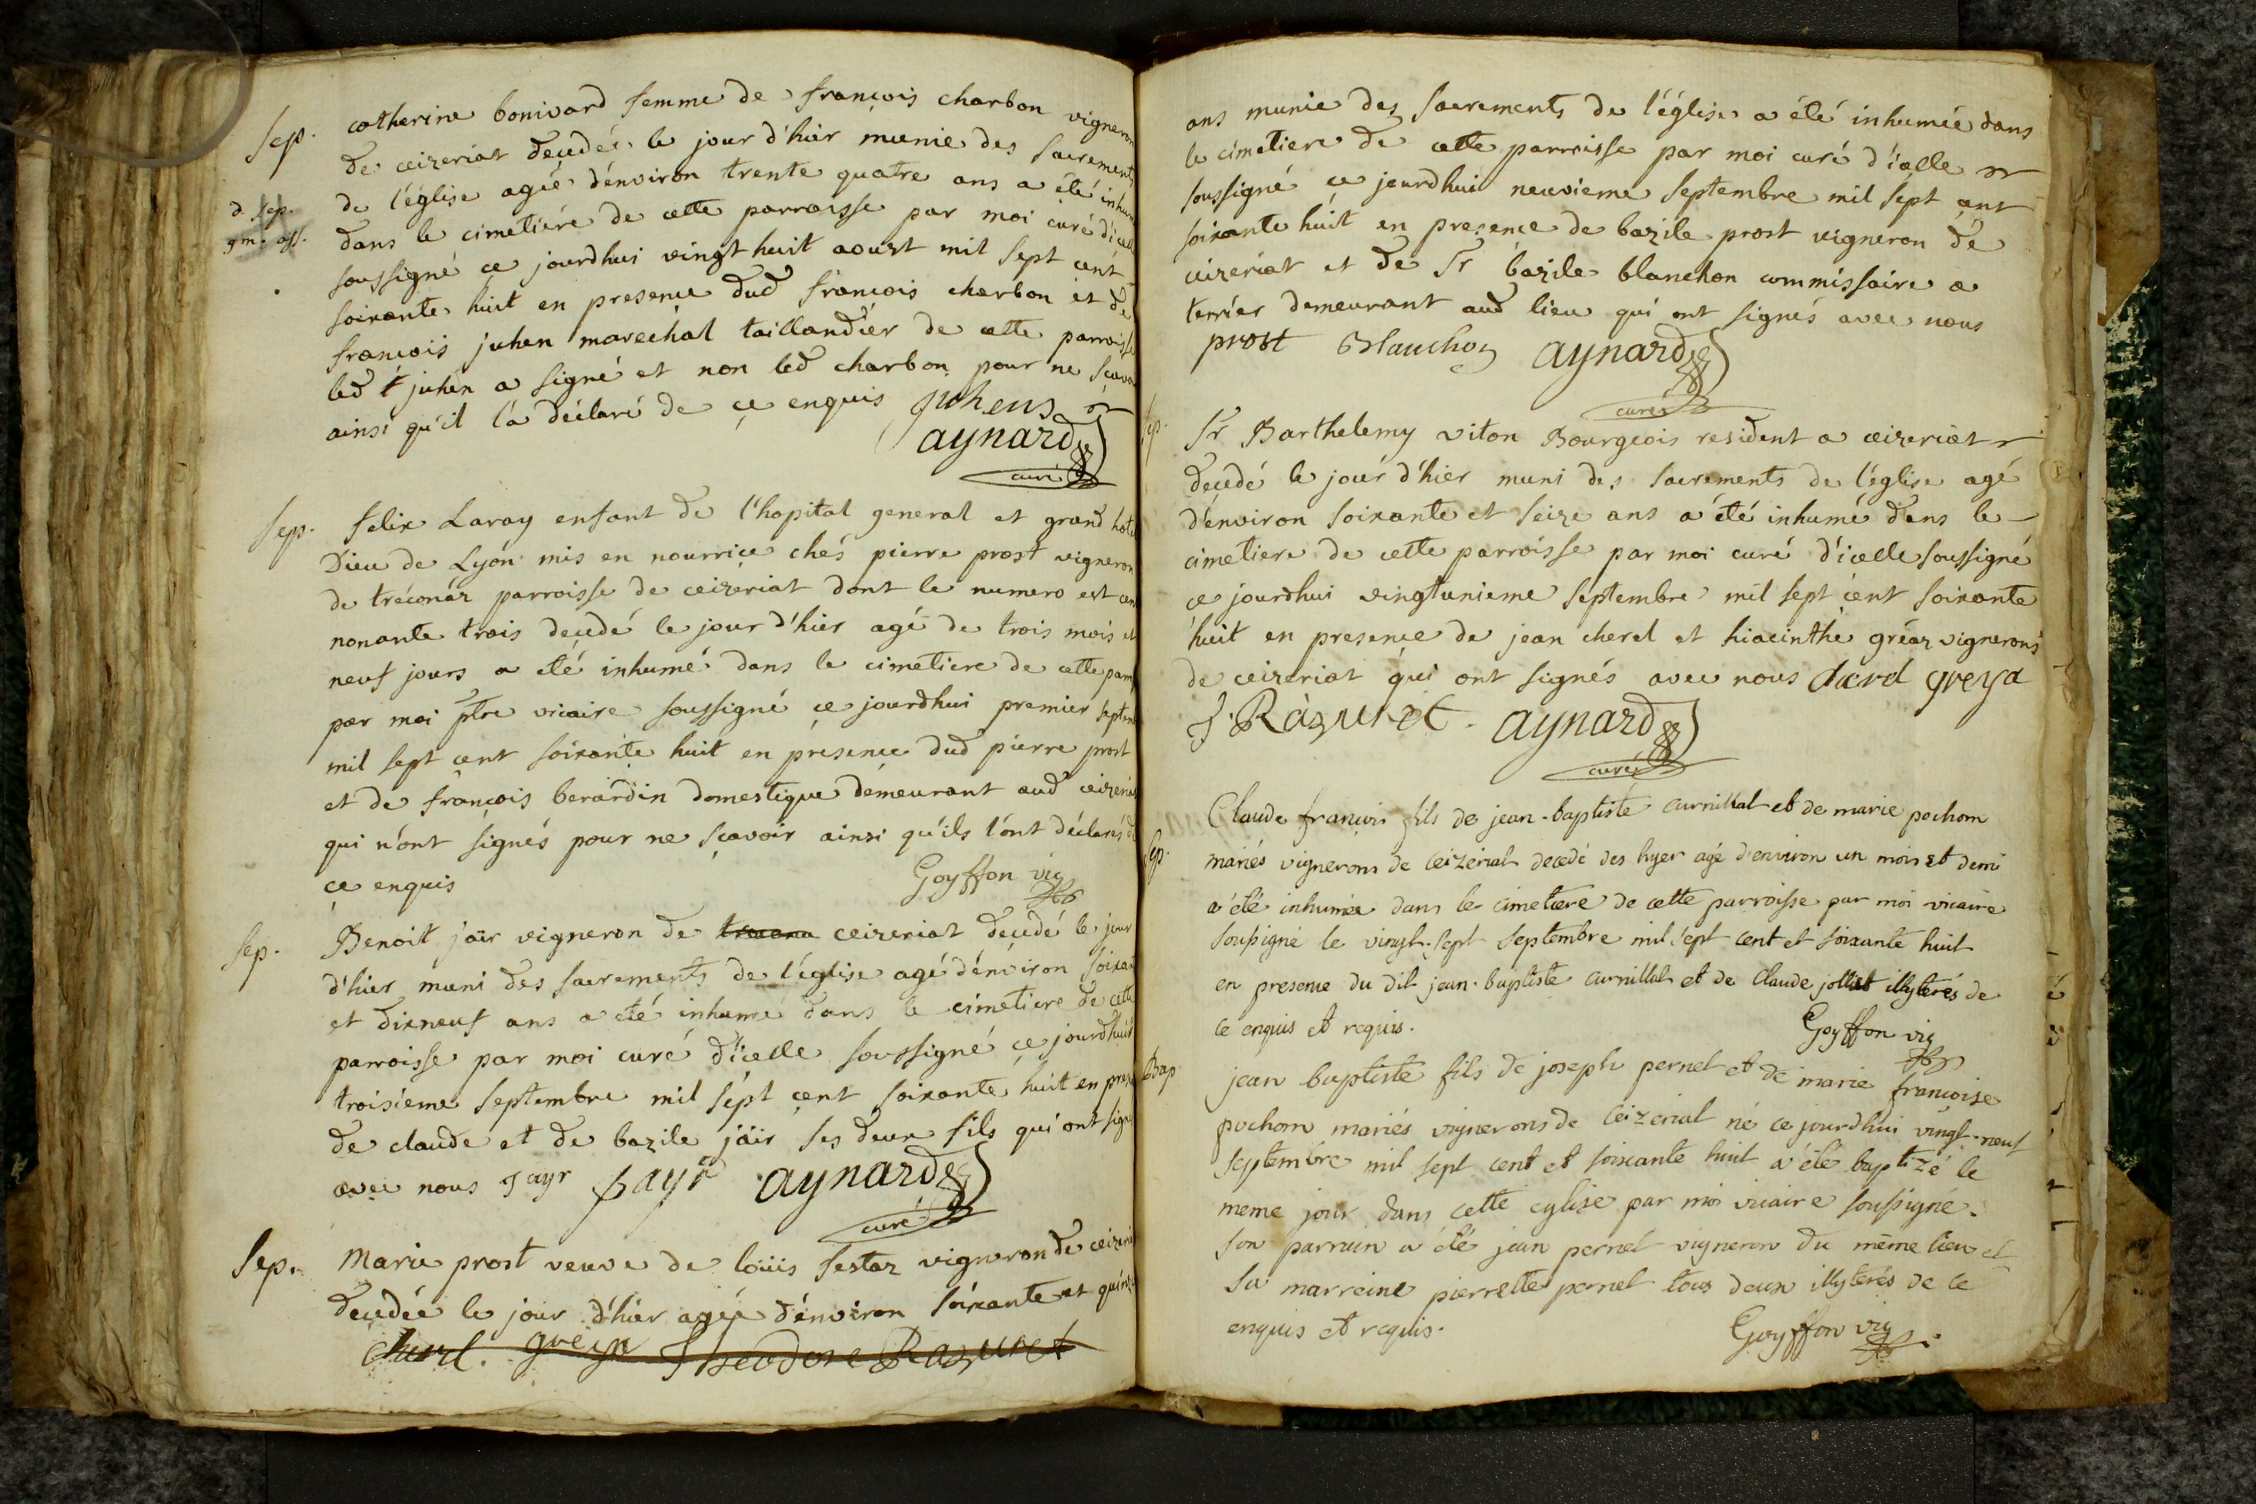 Sep. catherine bonivard femme de françois charbon vigneron
de ceizeriat decedée le jour d'hier munie des sacrements
d. sep. de l'église agée d'environ trente quatre ans a été
gm. off. dans le cimetiére de cette parroisse par moi curé
soussigné ce jourdhui vingt huit aoust mil sept cent
soixante huit en presence dud françois charbon et de
françois juhen marechal taillandier de cette parroisse
led juhen a signé et non led charbon pour ne
ainsi qu'il l'a déclaré de ce enquis juhen
aynard
curé
Sep. felix Laray enfant de l'hopital general et grand
Dieu de Lyon mis en nourrice chés pierre prost vigneron
de tréconáz parroisse de ceizeriat dont le numero est
nonante trois decedé le jour d'hier agé de trois mois et
neuf jours a été inhumé dans le cimetiere de cette
par moi ptre vicaire soussigné ce jourdhui premier
mil sept cent soixante huit en presence dud pierre prost
et de françois berardin domestique démeurant aud
qui n'ont signés pour ne sçavoir ainsi qu'ils l'ont déclarés de
ce enquis Goyffon vic
Sep. Benoit jaïr vigneron de ceizeriat decedé le jour
d'hier muni des sacrements de l'église agé d'environ
et dixneuf ans a été inhumé dans le cimetiere de cette
parroisse par moi curé d'icelle soussigné ce jourdhui
troisieme septembre mil sépt cent soixante huit en
de claude et de bazile jaïr ses deux fils qui ont
avec nous Jayr Jayr aynard
curé
Sep. Marie prost veuve de loüis festaz vigneron de
decedée le jour d'hier agée d'environ soixante et
Cherel. greya Theodore Razuret
ans munie des sacrements de l'église a été inhumée dans
le cimetiere de cette parroisse par moi curé d'icelle
soussigné ce jourdhui neuvieme septembre mil sépt cent
soixante huit en presence de bazile prost vigneron de
ceizeriat et de Sr bazile blanchon commissaire a
terrier demeurant aud lieu qui ont signés avec nous
prost Blanchon aynard
curé
Sep. Sr Barthelemy viton Bourgeois resident a ceizeriat
decedé le jour d'hier muni des sacrements de l'église agé
d'environ soixante et seize ans a été inhumé dans le
cimetiere de cette parroisse par moi curé d'icelle soussigné
ce jourdhui vingtunieme septembre mil sept cent soixante
huit en presence de jean cherel et hiacinthe gréaz vignerons
de ceizeriat qui ont signés avec nous cherel greya
T. Razuret. aynard
curé
Claude françois fils de jean-baptiste curnillat et de marie pochon
Sep. mariés vignerons de Ceizeriat decedé des hyer agé d'environ un mois et demi
a été inhumée dans le cimetiere de cette parroisse par moi vicaire
soussigné le vingt-sept septembre mil sept cent et soixante huit
en presence du dit jean-baptiste curnillat et de Claude jolliet illyterés de
ce enquis et requis. Goyffon vic
Bap jean baptiste fils de joseph pernet et de marie françoise
pochon mariés vignerons de Ceizeriat né ce jourdhui vingt-neuf
septembre mil sept cent et soixante huit a été baptizé le
meme jour dans cette eglise par moi vicaire soussigné.
son parrain a été jean pernet vigneron du même lieu et
sa marreine pierrette pernet tous deux illyterés de ce
enquis et requis. Goyffon vic